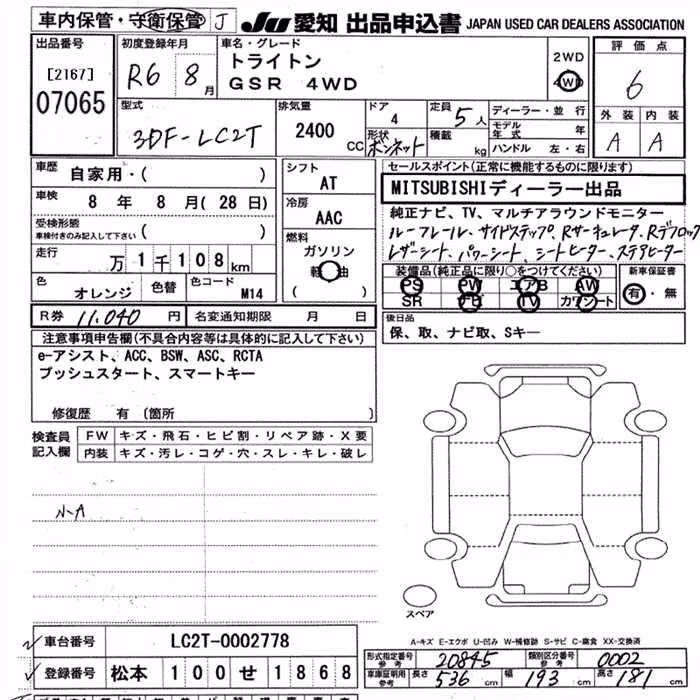 車内保管・守衛保管 J JU 愛知 出品申込書 JAPAN USED CAR DEALERS ASSOCIATION
出品番号 [2167] 07065
初度登録年月 R6 8月
車名・グレード トライトン GSR 4WD
2WD 4WD
評価点 6
外装 内装 A A
型式 3DF-LC2T
排気量 2400 CC
ドア 4
形状 ボンネット
定員 5人
積載 kg
ディーラー・並行
モデル年式 年
ハンドル 左・右
車歴 自家用・( )
車検 8年 8月(28日)
受検形態 車検付きのみ記入して下さい ( )
走行 万1千108km
色 オレンジ 色替 色コード M14
シフト AT
冷房 AAC
燃料 ガソリン 軽油 ( )
セールスポイント(正常に機能するものに限ります)
MITSUBISHIディーラー出品
純正ナビ、TV、マルチアラウンドモニター
ルーフレール、サイドステップ、Rサーキュレータ、Rデフロック
レザーシート、パワーシート、シートヒーター、ステアヒーター
装備品(純正品に限り○をつけてください)
PS PW エアB AW
SR ナビ TV カワシート
新車保証書 有・無
R券 11,040円 名変通知期限 月 日
後日品
保、取、ナビ取、Sキー
注意事項申告欄(不具合内容等は具体的に記入して下さい)
e-アシスト、ACC、BSW、ASC、RCTA
プッシュスタート、スマートキー
修復歴 有 (箇所 )
検査員記入欄
FW キズ・飛石・ヒビ割・リペア跡・X要
内装 キズ・汚レ・コゲ・穴・スレ・キレ・破レ
N-A
スペア
A-キズ E-エクボ U-凹み W-補修跡 S-サビ C-腐食 XX-交換済
車台番号 LC2T-0002778
登録番号 松本 100 せ 1868
形式指定番号 参考 20845 類別区分番号 参考 0002
車庫証明用 参考 長さ 536 cm 幅 193 cm 高さ 181 cm